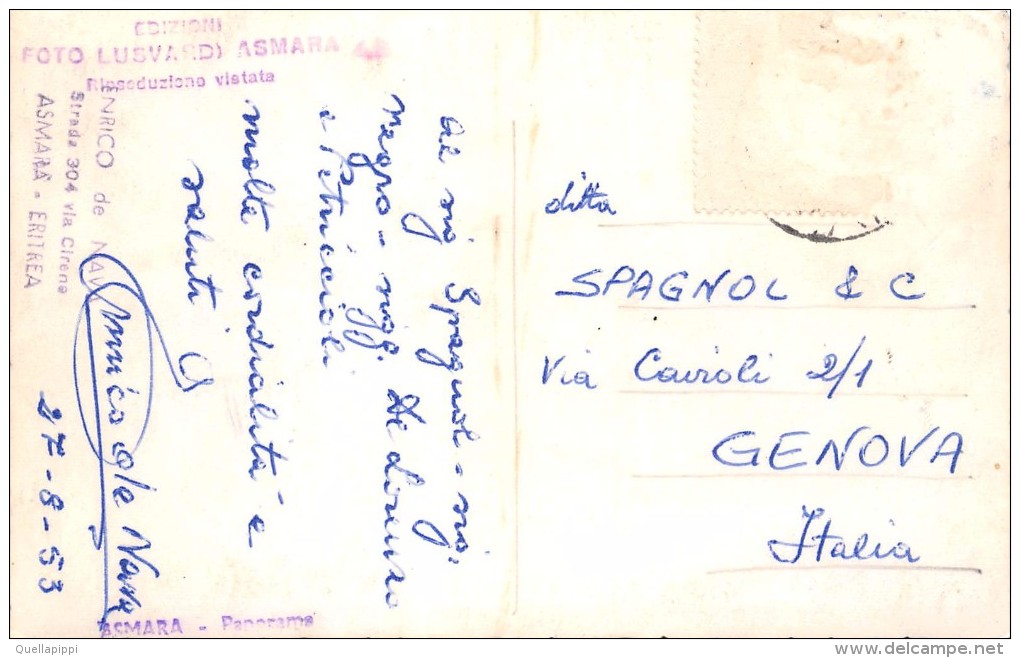 EDIZIONI
FOTO LUSVARDI ASMARA
Riproduzione vietata
ENRICO de NAVA
Strada 304 via Cirene
ASMARA - ERITREA
Al sig Spagnol - sig.
Negro - sigg. De Lorenzo
e Petruccioli
molte cordialità e
saluti
Enrico de Nava
27-8-53
ditta
SPAGNOL & C
Via Cairoli 2/1
GENOVA
Italia
ASMARA - Panorama
© Quellapippi
delcampe.net